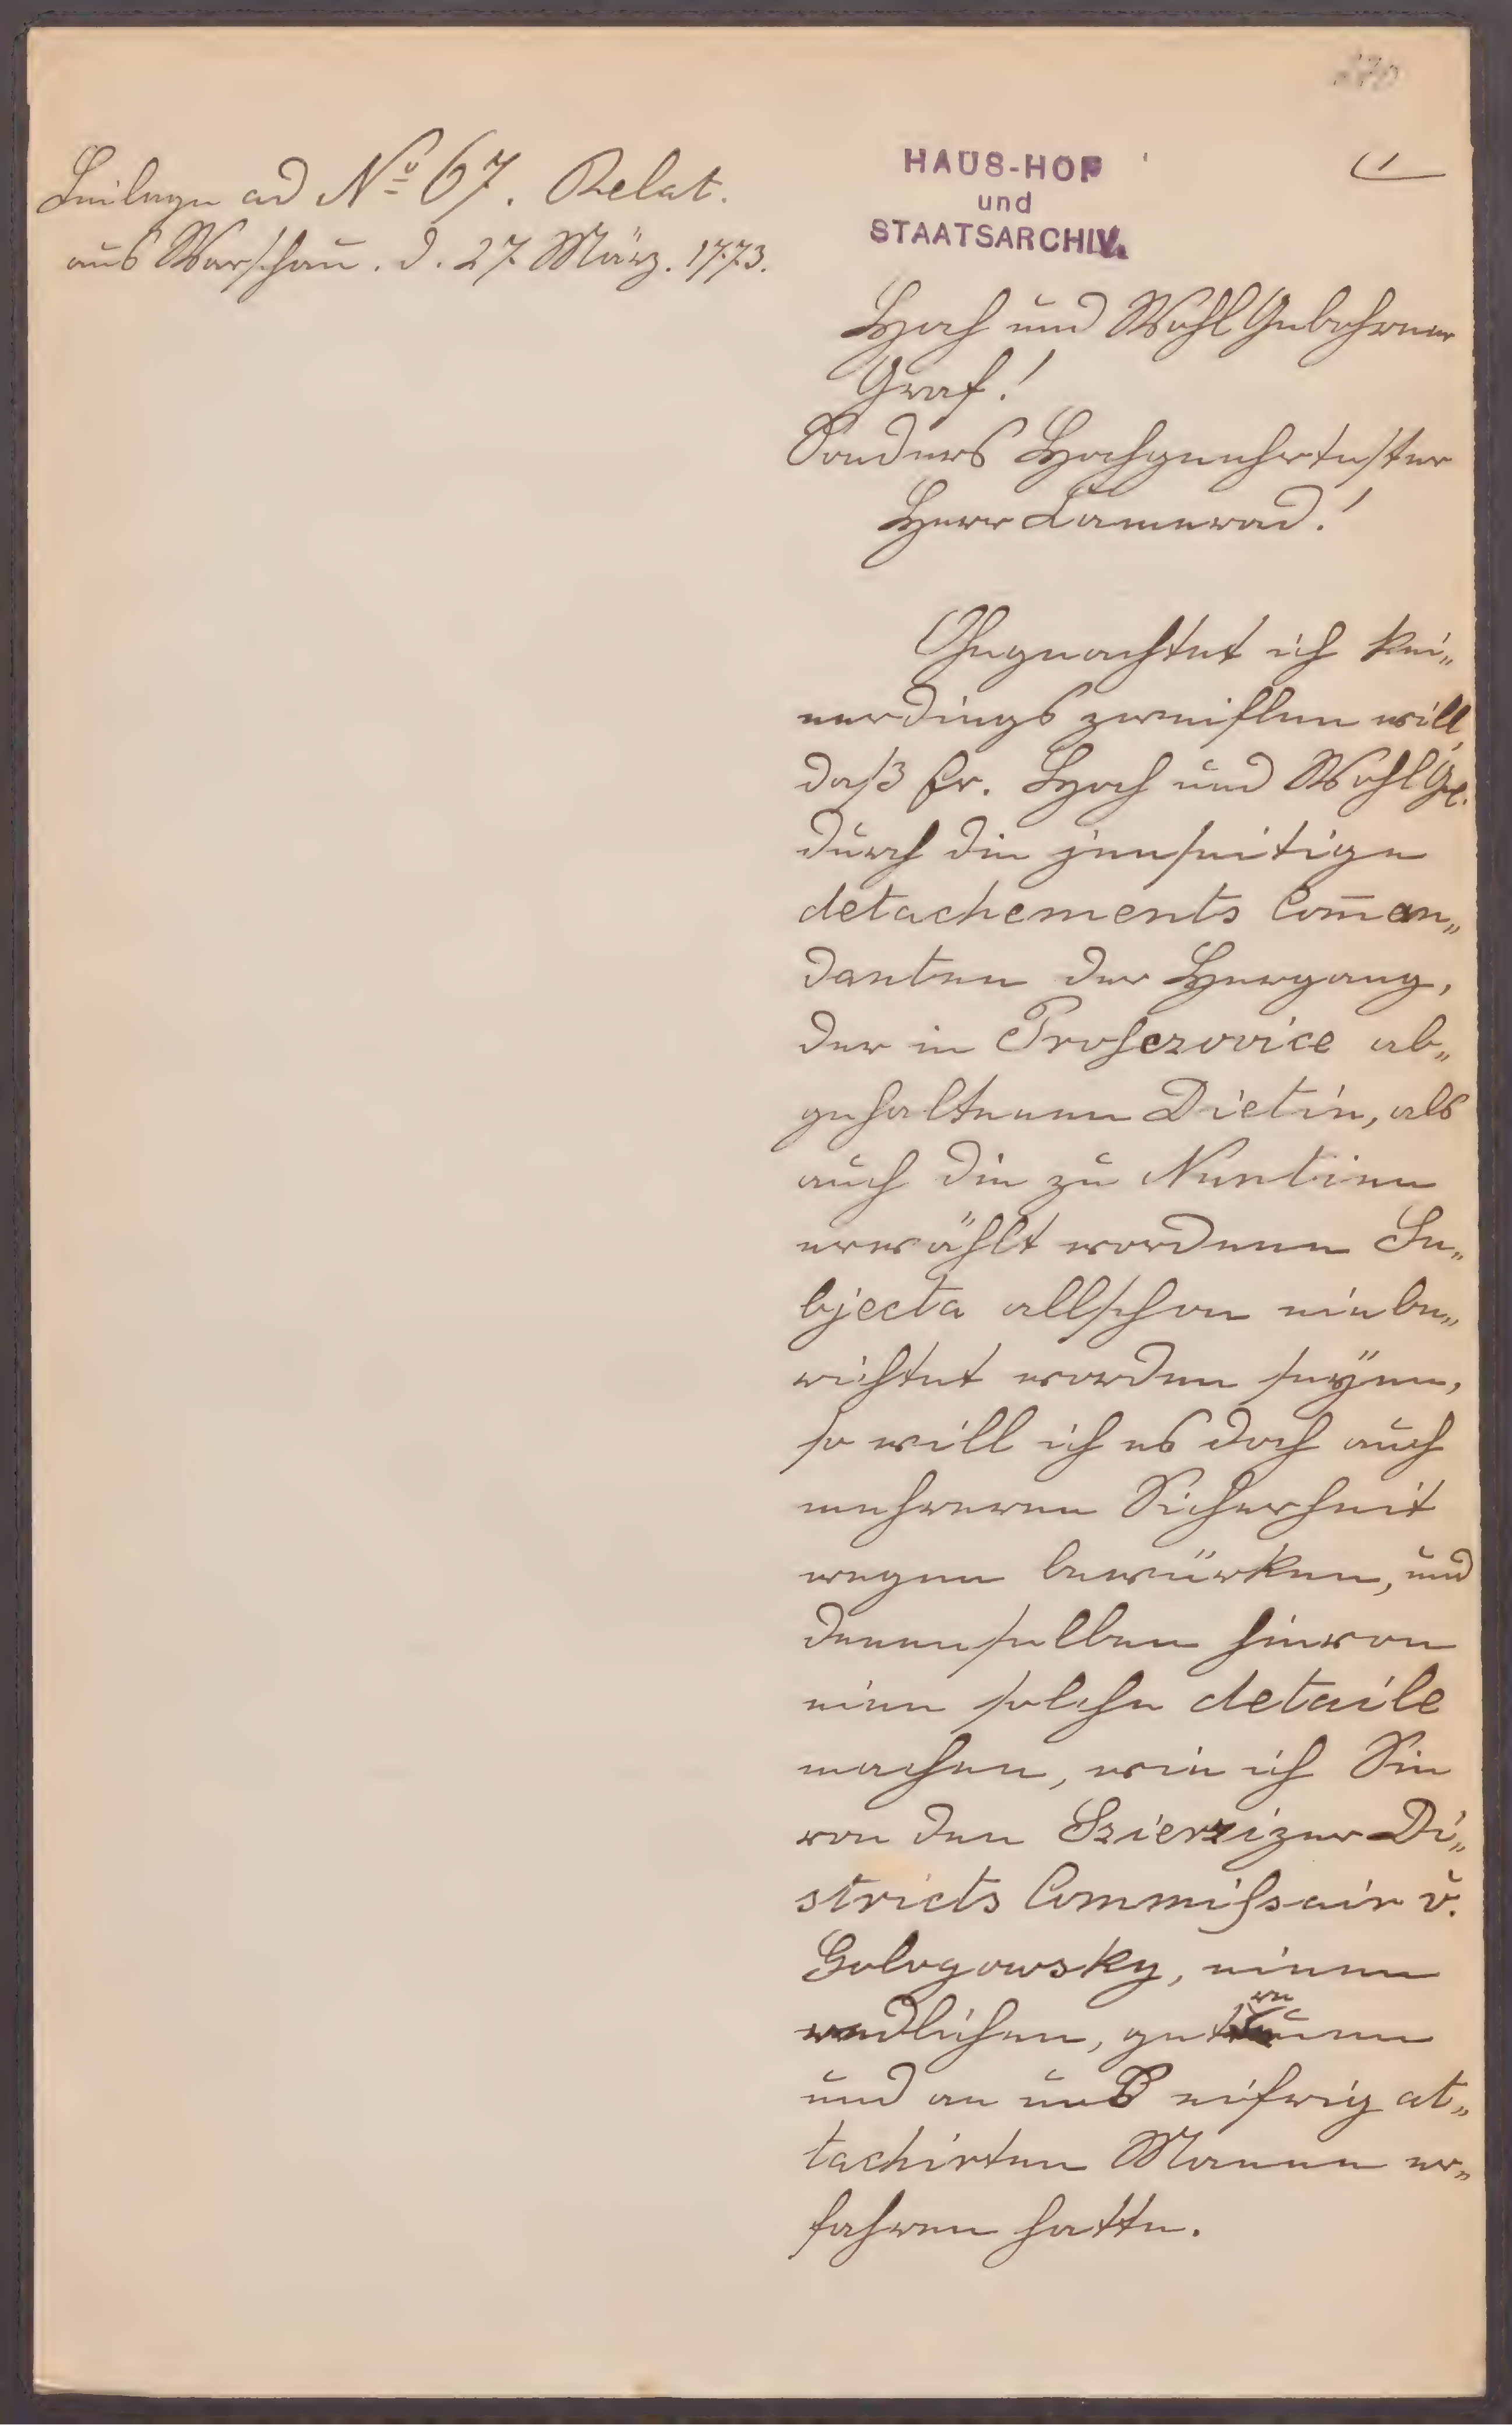 270
Beilage ad Nº 67. Relat.
aus Warschau. d. 27. März. 1773.
HAUS-HOF
und
STAATSARCHIV.
1
Hoch und Wohl Gebohrner
Graf!
Sonders Hochgeehrtester
Herr Camerad!
Ohngeachtet ich kei„
nerdings zweiflen will,
daß Er. Hoch und Wohl Ge.
durch die jenseitige
detachements Com̅an„
danten der Hergang,
der in Proszovice ab„
gehaltenen Dietin, als
auch die zu Nuntien
erwählt wordene Su„
bjecta allschon einbe„
richtet worden seyen,
so will ich es doch auch
mehreren Sicherheit
wegen bewürken, und
denenselben hievon
eine solche detaile
machen, wie ich Sie
von den Szierzizer Di„
stricts Commissair v.
Gologowsky, einen
redlichen, getreuen
und an uns eifrig at„
tachirten Mannen er„
fahren hatte.